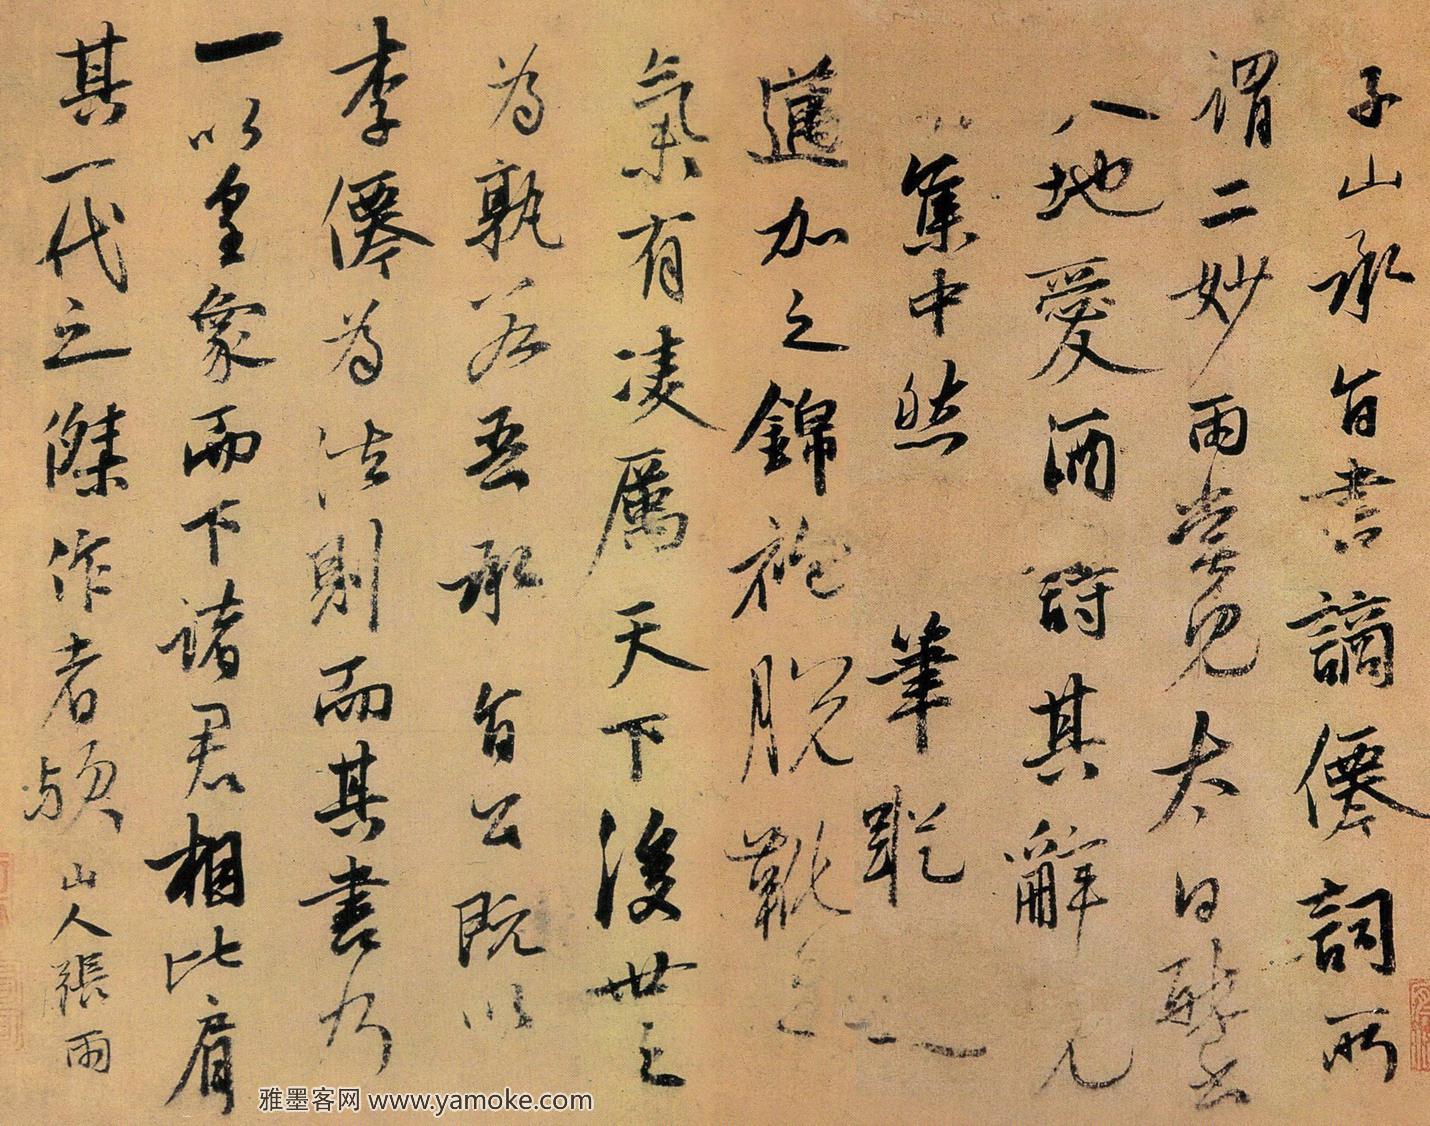 子山承旨書謫僊詞所
謂二妙雨嘗見太白醉書
八地愛酒詩其辭兄
集中然筆蹤
邁加之錦袍脫靴之
氣有凌厲天下後世之
為孰若吾承旨公既以
李僊為法則而其書乃
一以皇象而下諸君相比肩
其一代之傑作者歟山人張雨
雅墨客网 www.yamoke.com